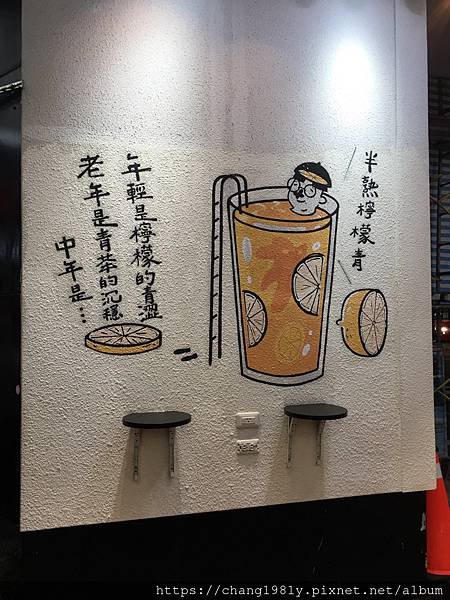 半熟檸檬青
年輕是檸檬的青澀
老年是青茶的沉穩
中年是…
https://chang1981y.pixnet.net/album